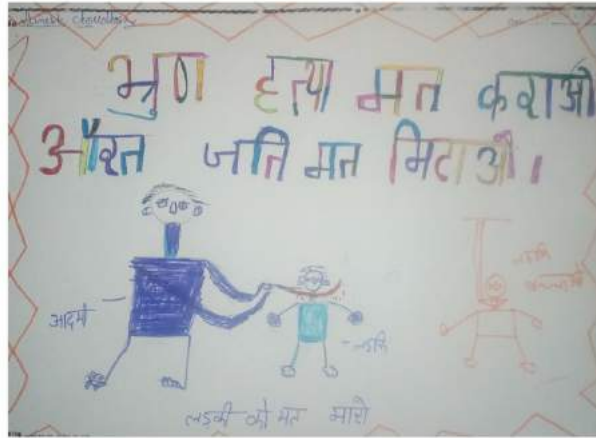 भ्रुण हत्या मत कराओ
औरत जाति मत मिटाओ।
आदमी
लड़की को मत मारो